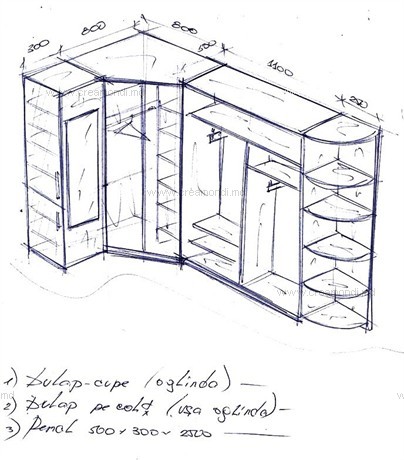 300 800 800 500 1100 250
www.creamondi.md
www.creamondi.md
www.creamondi.md
www.creamondi.md
1) Dulap-cupe (oglinda) —
2) Dulap pe colț (ușa oglinda) —
3) Penal 500 x 300 x 2500 —